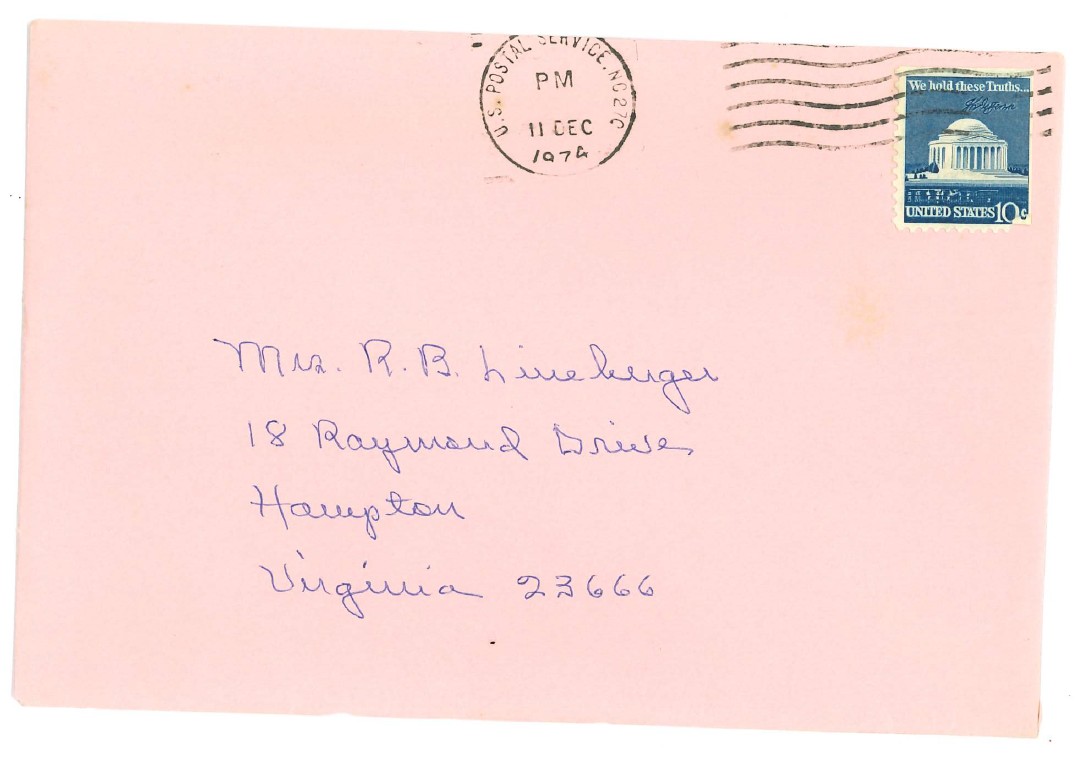 U.S. POSTAL SERVICE, NC 270
PM
11 DEC
1974
We hold these Truths...
UNITED STATES 10c
Mrs. R. B. Lineberger
18 Raymond Drive
Hampton
Virginia 23666